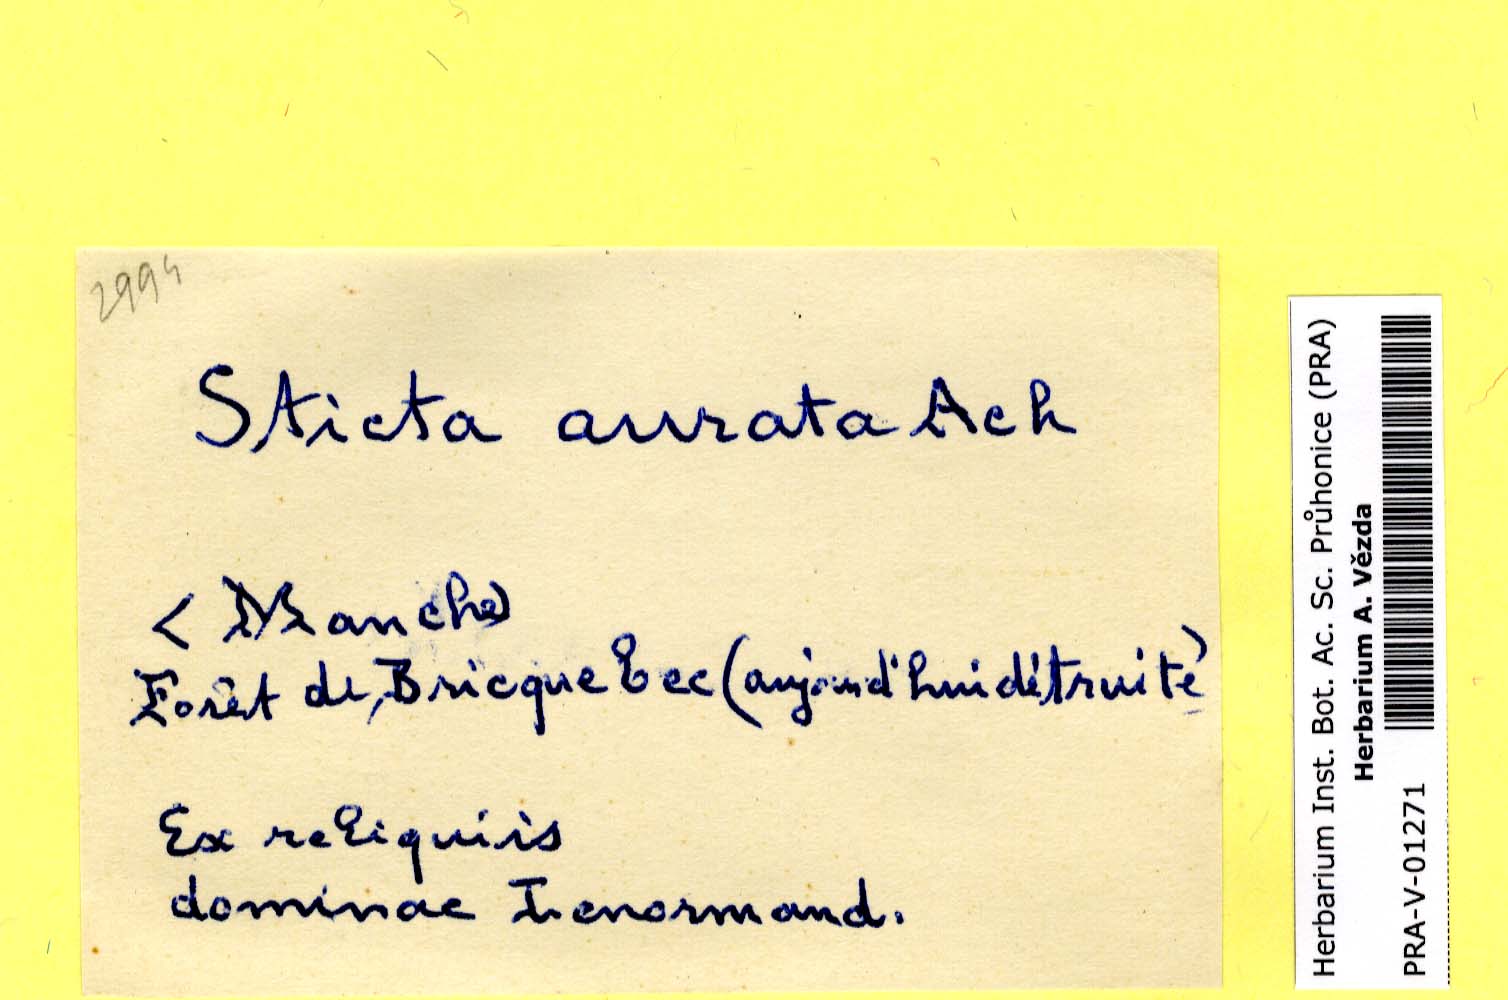 2994
Sticta aurata Ach
< Manche)
Forêt de Bricquebec (aujourd'hui détruite)
Ex reliquiis
dominae Lenormand.
Herbarium Inst. Bot. Ac. Sc. Průhonice (PRA)
Herbarium A. Vězda
PRA-V-01271